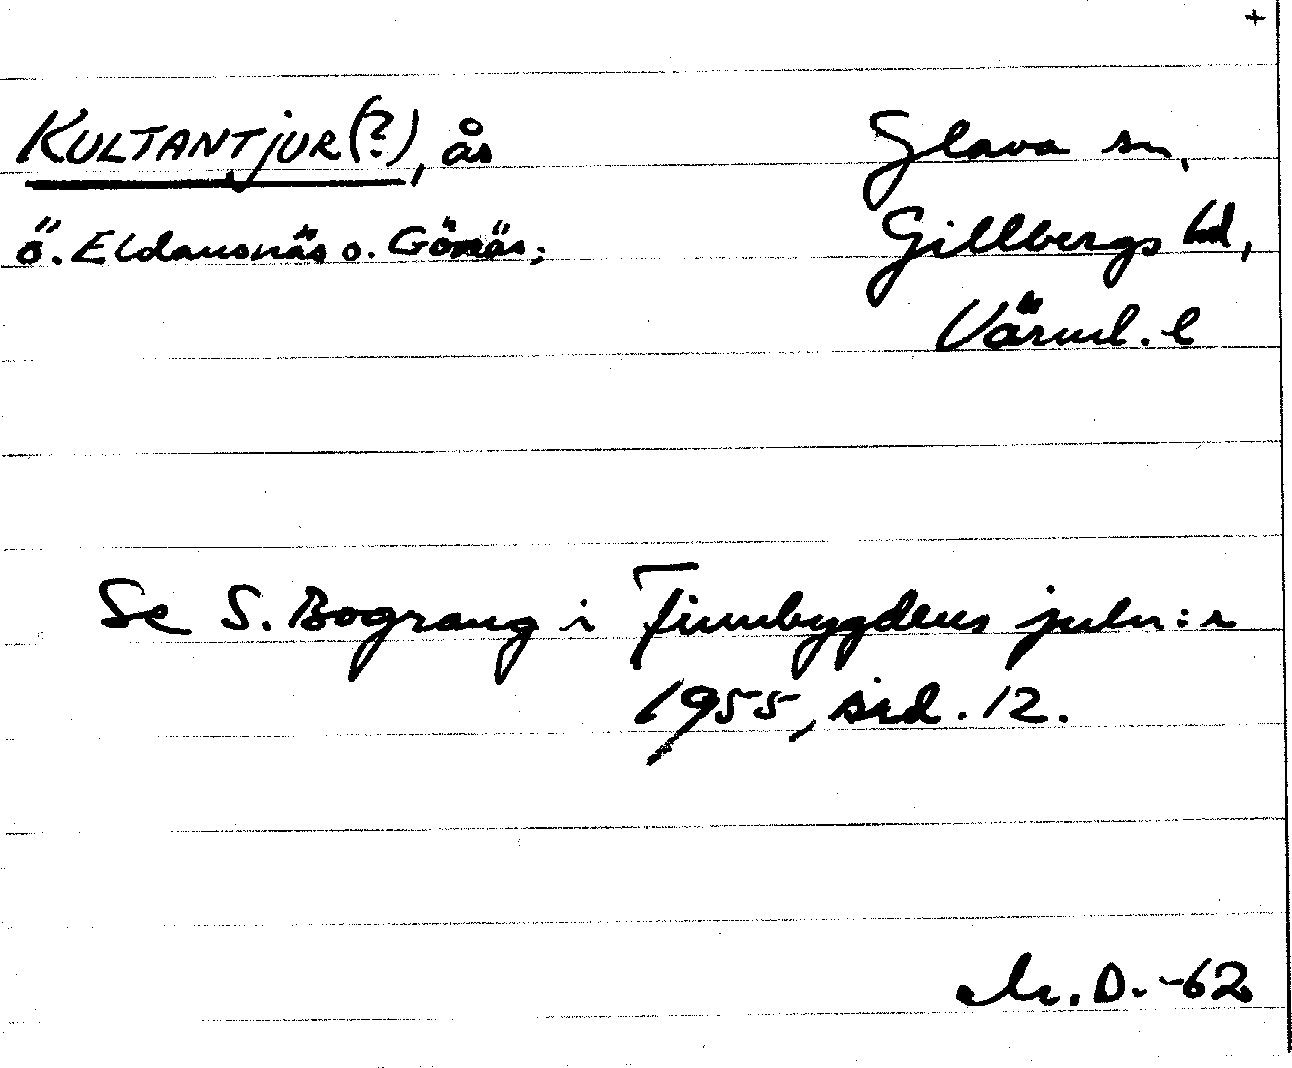 +
KULTANTJUR(?), ås
Glava sn,
ö. Eldansnäs o. Gönäs;
Gillbergs hd,
Värml. l
Se S. Bograng i Finnbygdens juln:r
1955, sid. 12.
M. D. -62